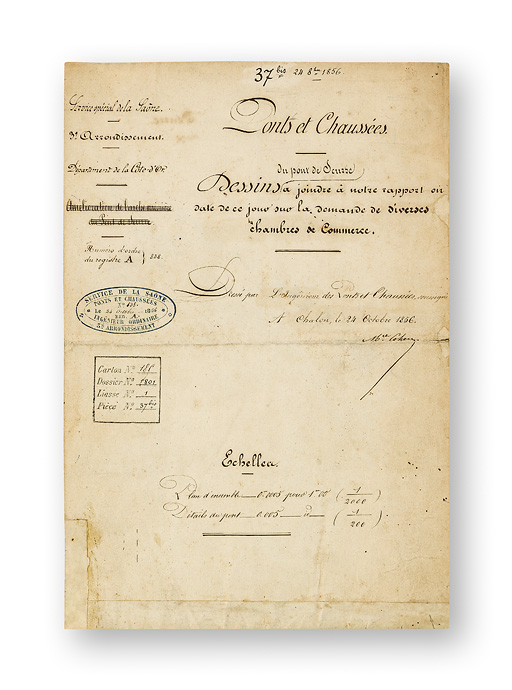 37 bis 24 8bre 1856
Service spécial de la Saône.
3e Arrondissement.
Département de la Côte-d'Or.
Amélioration de l'arche marinière
du Pont de Seurre
Numéro d'ordre
du registre A } 528.
SERVICE DE LA SAONE
PONTS ET CHAUSSÉES
No
Le 24 octobre 1856
REG. A.
INGÉNIEUR ORDINAIRE
3e ARRONDISSEMENT
Carton No 181e
Dossier No 1801
Liasse No 1
Pièce No 37 bis
Ponts et Chaussées.
du pont de Seurre
Dessins à joindre à notre rapport en
date de ce jour sur la demande de diverses
chambres de Commerce.
Dressé par l'Ingénieur des Ponts et Chaussées, soussigné
A Chalon, le 24 Octobre 1856.
Echelles.
Plan d'ensemble 0.0005 pour 1.00 (1/2000)
Détails du pont 0.005 d° (1/200)